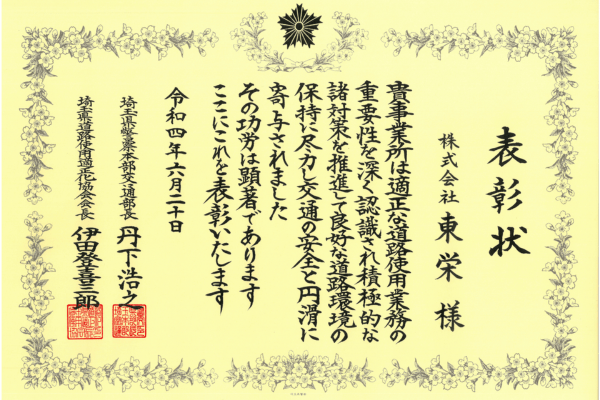 表彰状
株式会社 東栄 様
貴事業所は適正な道路使用業務の
重要性を深く認識され積極的な
諸対策を推進して良好な道路環境の
保持に尽力し交通の安全と円滑に
寄与されました
その功労は顕著であります
ここにこれを表彰いたします
令和四年六月二十日
埼玉県警察本部交通部長 丹下浩之
埼玉県道路使用適正化協会会長 伊田登喜三郎